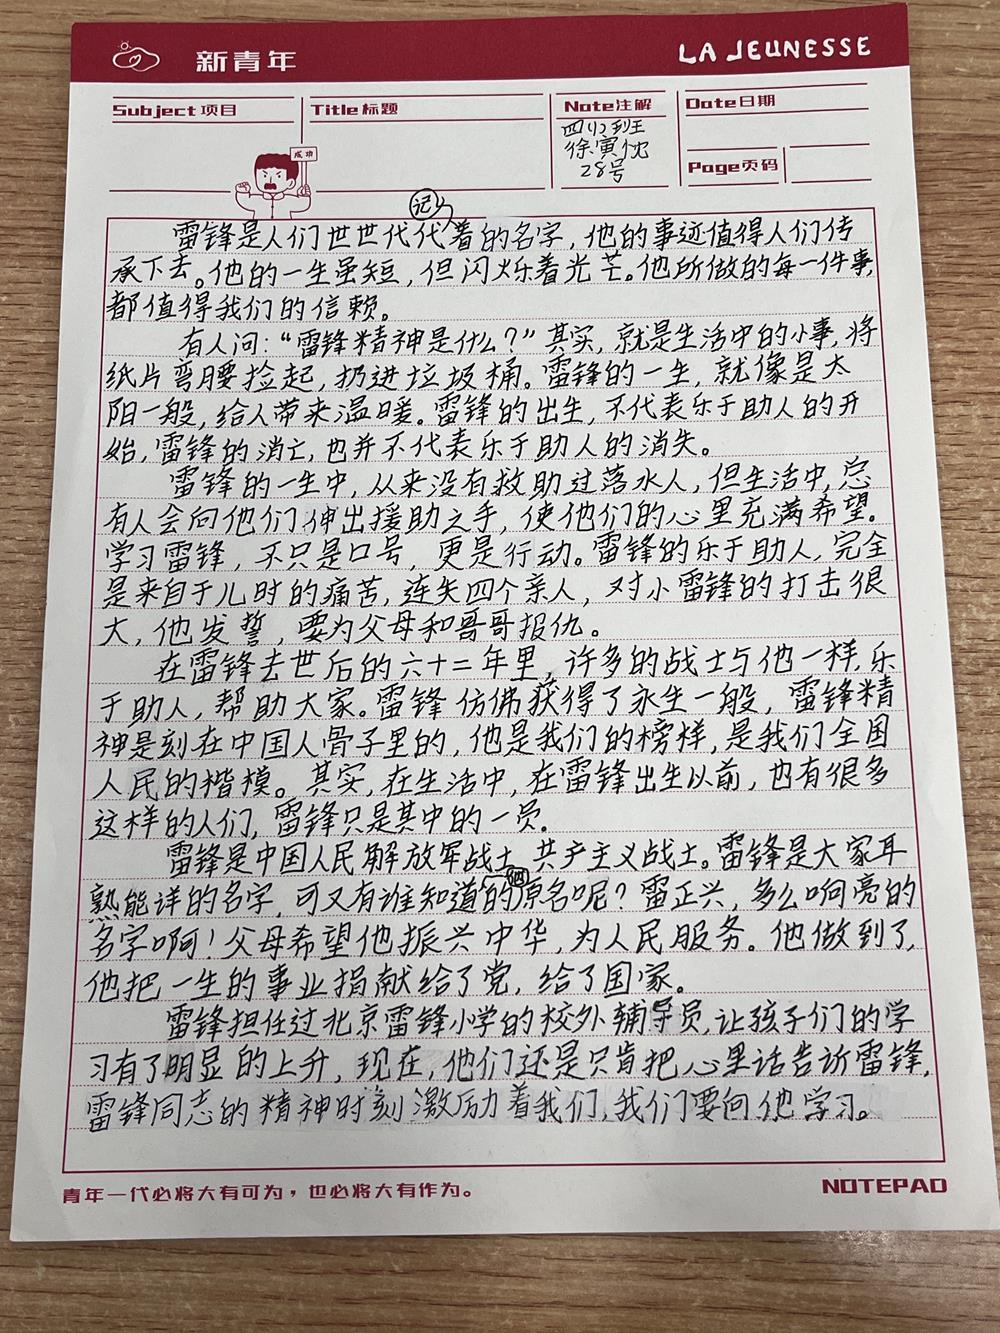 新青年
LA JEUNESSE
Subject项目
Title标题
Note注解
Date日期
四(2)班
徐寅忱
28号
Page页码
成功
雷锋是人们世世代代记着的名字，他的事迹值得人们传
承下去。他的一生虽短，但闪烁着光芒。他所做的每一件事，
都值得我们的信赖。
有人问：“雷锋精神是什么？”其实，就是生活中的小事，将
纸片弯腰捡起，扔进垃圾桶。雷锋的一生，就像是太
阳一般，给人带来温暖。雷锋的出生，不代表乐于助人的开
始，雷锋的消亡，也并不代表乐于助人的消失。
雷锋的一生中，从来没有救助过落水人，但生活中，总
有人会向他们伸出援助之手，使他们的心里充满希望。
学习雷锋，不只是口号，更是行动。雷锋的乐于助人，完全
是来自于儿时的痛苦，连失四个亲人，对小雷锋的打击很
大，他发誓，要为父母和哥哥报仇。
在雷锋去世后的六十二年里，许多的战士与他一样，乐
于助人，帮助大家。雷锋仿佛获得了永生一般，雷锋精
神是刻在中国人骨子里的，他是我们的榜样，是我们全国
人民的楷模。其实，在生活中，在雷锋出生以前，也有很多
这样的人们，雷锋只是其中的一员。
雷锋是中国人民解放军战士，共产主义战士。雷锋是大家耳
熟能详的名字，可又有谁知道他的原名呢？雷正兴，多么响亮的
名字啊！父母希望他振兴中华，为人民服务。他做到了，
他把一生的事业捐献给了党，给了国家。
雷锋担任过北京雷锋小学的校外辅导员，让孩子们的学
习有了明显的上升，现在，他们还是只肯把心里话告诉雷锋，
雷锋同志的精神时刻激励着我们，我们要向他学习。
青年一代必将大有可为，也必将大有作为。
NOTEPAD